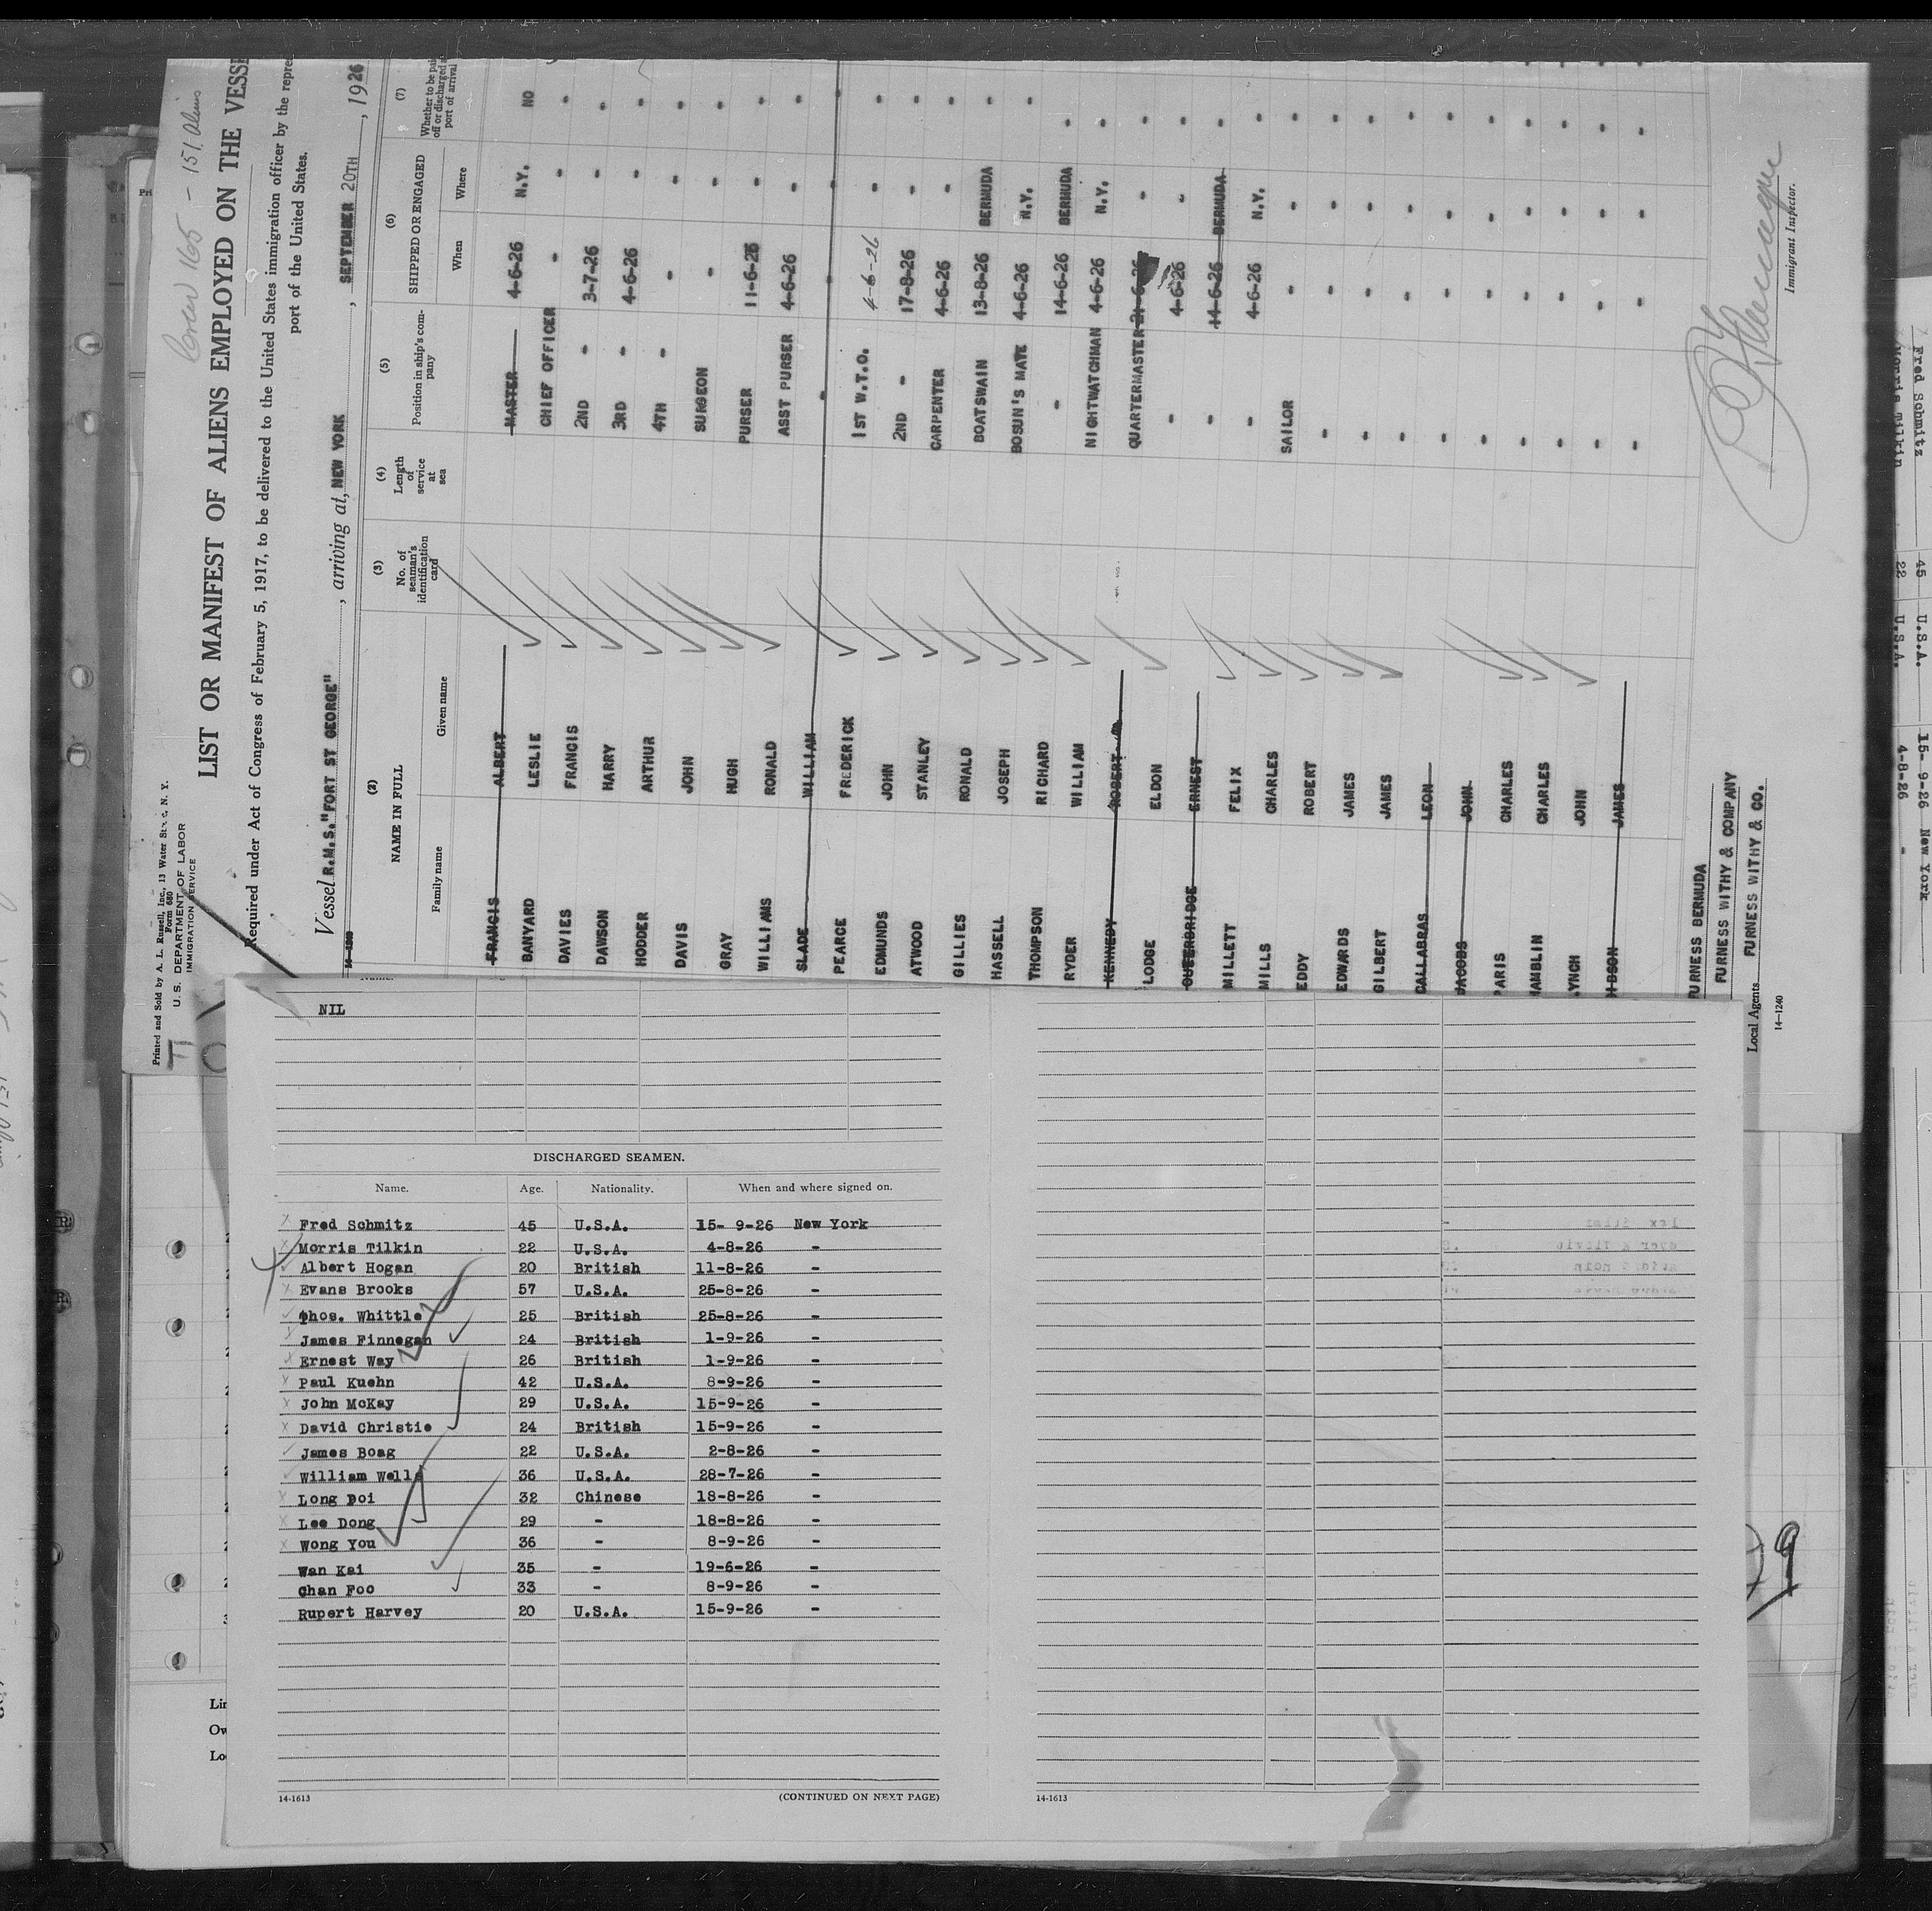 Printed and Sold by A. L. Russell, Inc., 13 Water Street, N. Y.
Form 680
U. S. DEPARTMENT OF LABOR
IMMIGRATION SERVICE
Crew 165 - 151 Aliens
LIST OR MANIFEST OF ALIENS EMPLOYED ON THE VESSE
Required under Act of Congress of February 5, 1917, to be delivered to the United States immigration officer by the repres
port of the United States.
Vessel R.M.S. "FORT ST GEORGE", arriving at, NEW YORK, SEPTEMBER 20TH, 1926
(2) (3) (4) (5) (6) (7)
NAME IN FULL No. of seaman's identification card Length of service at sea Position in ship's company SHIPPED OR ENGAGED Whether to be paid off or discharged at port of arrival
Family name Given name When Where
FRANCIS ALBERT MASTER 4-6-26 N.Y. NO
BANYARD LESLIE CHIEF OFFICER - - -
DAVIES FRANCIS 2ND - 3-7-26 - -
DAWSON HARRY 3RD - 4-6-26 - -
HODDER ARTHUR 4TH - - - -
DAVIS JOHN SURGEON - - -
GRAY HUGH PURSER 11-6-26 - -
WILLIAMS RONALD ASST PURSER 4-6-26 - -
SLADE WILLIAM - - - -
PEARCE FREDERICK 1ST W.T.O. 4-6-26 - -
EDMUNDS JOHN 2ND - 17-8-26 - -
ATWOOD STANLEY CARPENTER 4-6-26 - -
GILLIES RONALD BOATSWAIN 13-8-26 BERMUDA -
HASSELL JOSEPH BOSUN'S MATE 4-6-26 N.Y. -
THOMPSON RICHARD - 14-6-26 BERMUDA -
RYDER WILLIAM NIGHTWATCHMAN 4-6-26 N.Y. -
KENNEDY ROBERT QUARTERMASTER 21-6-26 - -
LODGE ELDON - 4-6-26 - -
OUTERBRIDGE ERNEST - 14-6-26 BERMUDA -
MILLETT FELIX - 4-6-26 N.Y. -
MILLS CHARLES SAILOR - - -
EDDY ROBERT - - - -
EDWARDS JAMES - - - -
GILBERT JAMES - - - -
CALLABRAS LEON - - - -
JACOBS JOHN - - - -
PARIS CHARLES - - - -
HAMBLIN CHARLES - - - -
LYNCH JOHN - - - -
JAMES - - - -
FURNESS BERMUDA
FURNESS WITHY & COMPANY
Local Agents FURNESS WITHY & CO.
14-1240
Immigrant Inspector.
NIL
DISCHARGED SEAMEN.
Name. Age. Nationality. When and where signed on.
Fred Schmitz 45 U.S.A. 15- 9-26 New York
Morris Tilkin 22 U.S.A. 4-8-26 -
Albert Hogan 20 British 11-8-26 -
Evans Brooks 57 U.S.A. 25-8-26 -
Thos. Whittle 25 British 25-8-26 -
James Finnegan 24 British 1-9-26 -
Ernest Way 26 British 1-9-26 -
Paul Kuehn 42 U.S.A. 8-9-26 -
John McKay 29 U.S.A. 15-9-26 -
David Christie 24 British 15-9-26 -
James Boag 22 U.S.A. 2-8-26 -
William Wells 36 U.S.A. 28-7-26 -
Long Doi 32 Chinese 18-8-26 -
Lee Dong 29 - 18-8-26 -
Wong You 36 - 8-9-26 -
Wan Kai 35 - 19-6-26 -
Chan Foo 33 - 8-9-26 -
Rupert Harvey 20 U.S.A. 15-9-26 -
14-1613 (CONTINUED ON NEXT PAGE)
14-1613
Lin
Ow
Lo
Fred Schmitz 45 U.S.A. 15-9-26 New York
Morris Tilkin 22 U.S.A. 4-8-26 -